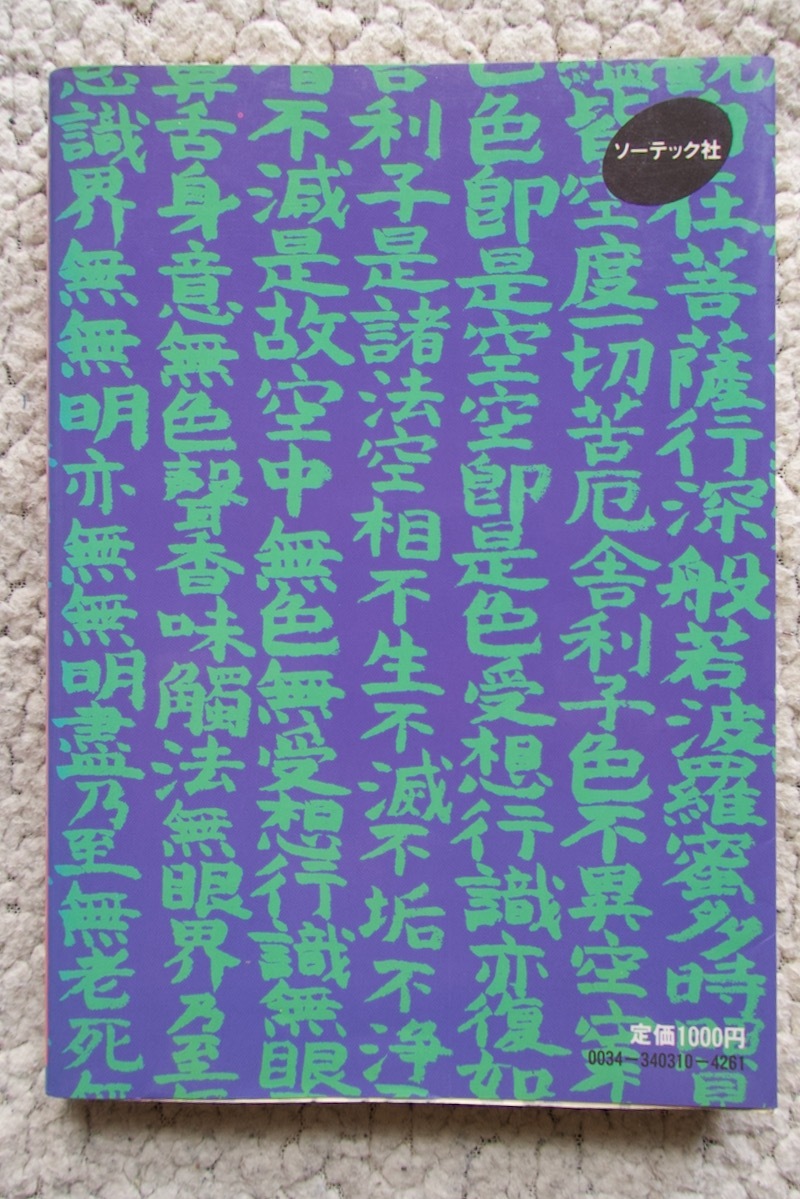 ソーテック社
在菩薩行深般若波羅蜜多時
皆空度一切苦厄舎利子色不異空空
色即是空空即是色受想行識亦復如
利子是諸法空相不生不滅不垢不浄
不減是故空中無色無受想行識無眼
舌身意無色聲香味觸法無眼界乃至
識界無無明亦無無明盡乃至無老死
定価1000円
0034-340310-4261